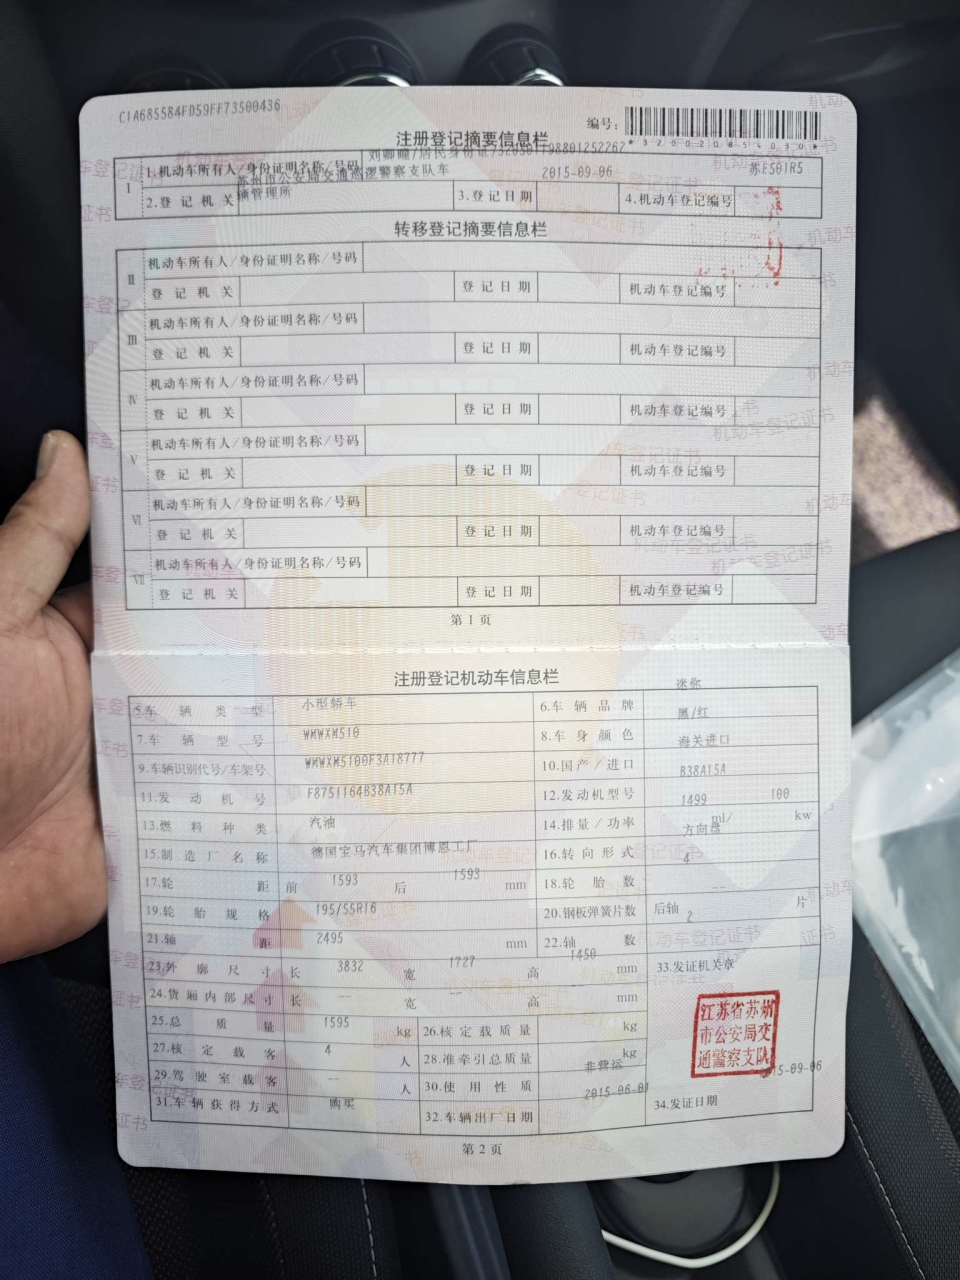 C1A685584FD59FF73500436
编号:
*320020854030*
注册登记摘要信息栏
I 1.机动车所有人/身份证明名称/号码 /居民身份证/320501198801252262
苏州市公安局交通巡逻警察支队车辆管理所 2015-09-06 苏E501R5
2.登记机关 3.登记日期 4.机动车登记编号
转移登记摘要信息栏
II 机动车所有人/身份证明名称/号码
登记机关 登记日期 机动车登记编号
III 机动车所有人/身份证明名称/号码
登记机关 登记日期 机动车登记编号
IV 机动车所有人/身份证明名称/号码
登记机关 登记日期 机动车登记编号
V 机动车所有人/身份证明名称/号码
登记机关 登记日期 机动车登记编号
VI 机动车所有人/身份证明名称/号码
登记机关 登记日期 机动车登记编号
VII 机动车所有人/身份证明名称/号码
登记机关 登记日期 机动车登记编号
第1页
注册登记机动车信息栏
5.车辆类型 小型轿车 6.车辆品牌 迷你
7.车辆型号 WMWXM510 8.车身颜色 黑/红
9.车辆识别代号/车架号 WMWXM5100F3A18777 10.国产/进口 海关进口
11.发动机号 F8751164B38A15A 12.发动机型号 B38A15A
13.燃料种类 汽油 14.排量/功率 1499 ml/ 100 kw
15.制造厂名称 德国宝马汽车集团博恩工厂 16.转向形式 方向盘
17.轮距 前 1593 后 1593 mm 18.轮胎数 4
19.轮胎规格 195/55R16 20.钢板弹簧片数 后轴 -- 片
21.轴距 2495 mm 22.轴数 2
23.外廓尺寸 长 3832 宽 1727 高 1450 mm 33.发证机关章
24.货厢内部尺寸 长 -- 宽 -- 高 -- mm
25.总质量 1595 kg 26.核定载质量 -- kg
27.核定载客 4 人 28.准牵引总质量 -- kg
29.驾驶室载客 -- 人 30.使用性质 非营运
31.车辆获得方式 购买 32.车辆出厂日期 2015-06-01 34.发证日期 2015-09-06
江苏省苏州
市公安局交
通警察支队
第2页